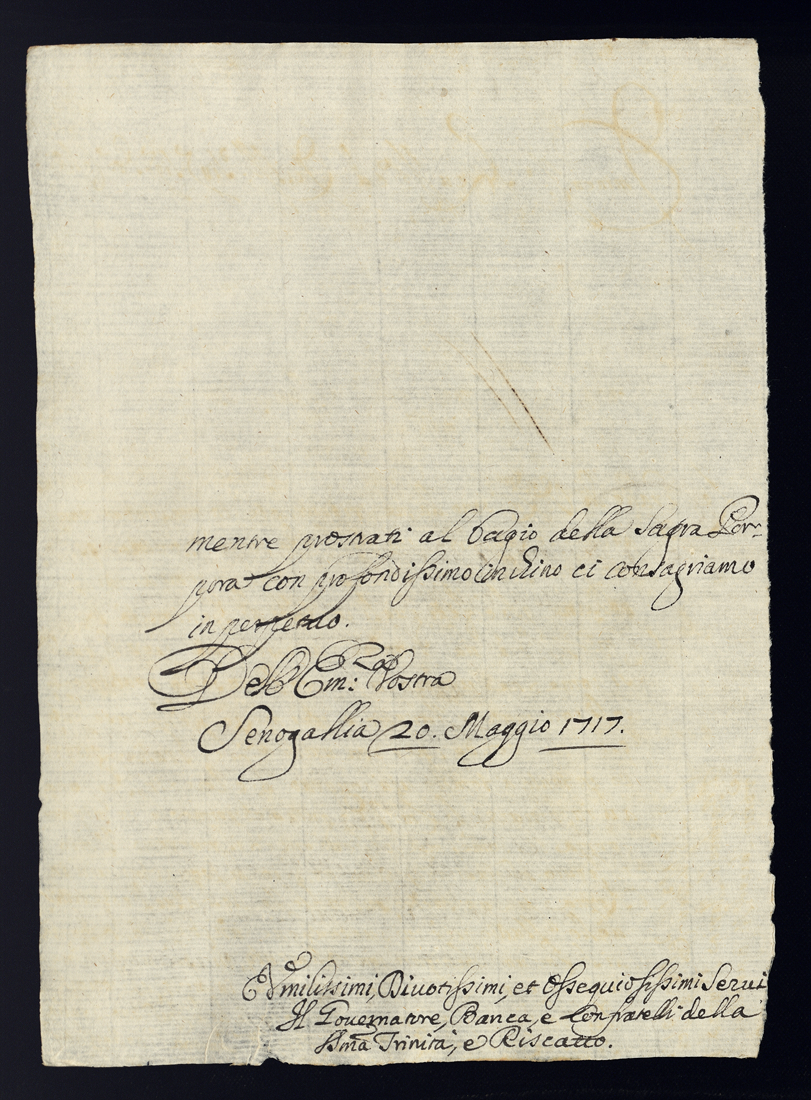 mentre prostrati al bagio della Sagra Por-
pora con profondissimo inchino ci consagriamo
in perpetuo.
Dell' Em:za Vostra
Senogallia 20. Maggio 1717.
Vmilissimi, Divotissimi, et Ossequiosissimi Servi
Il Governatore, Banca, e Confratelli della
SSma Trinità, e Riscatto.